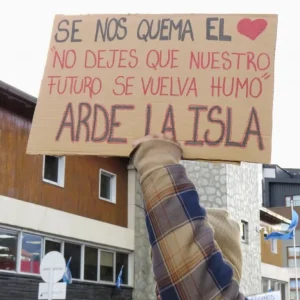 SE NOS QUEMA EL ❤
"NO DEJES QUE NUESTRO
FUTURO SE VUELVA HUMO"
ARDE LA ISLA